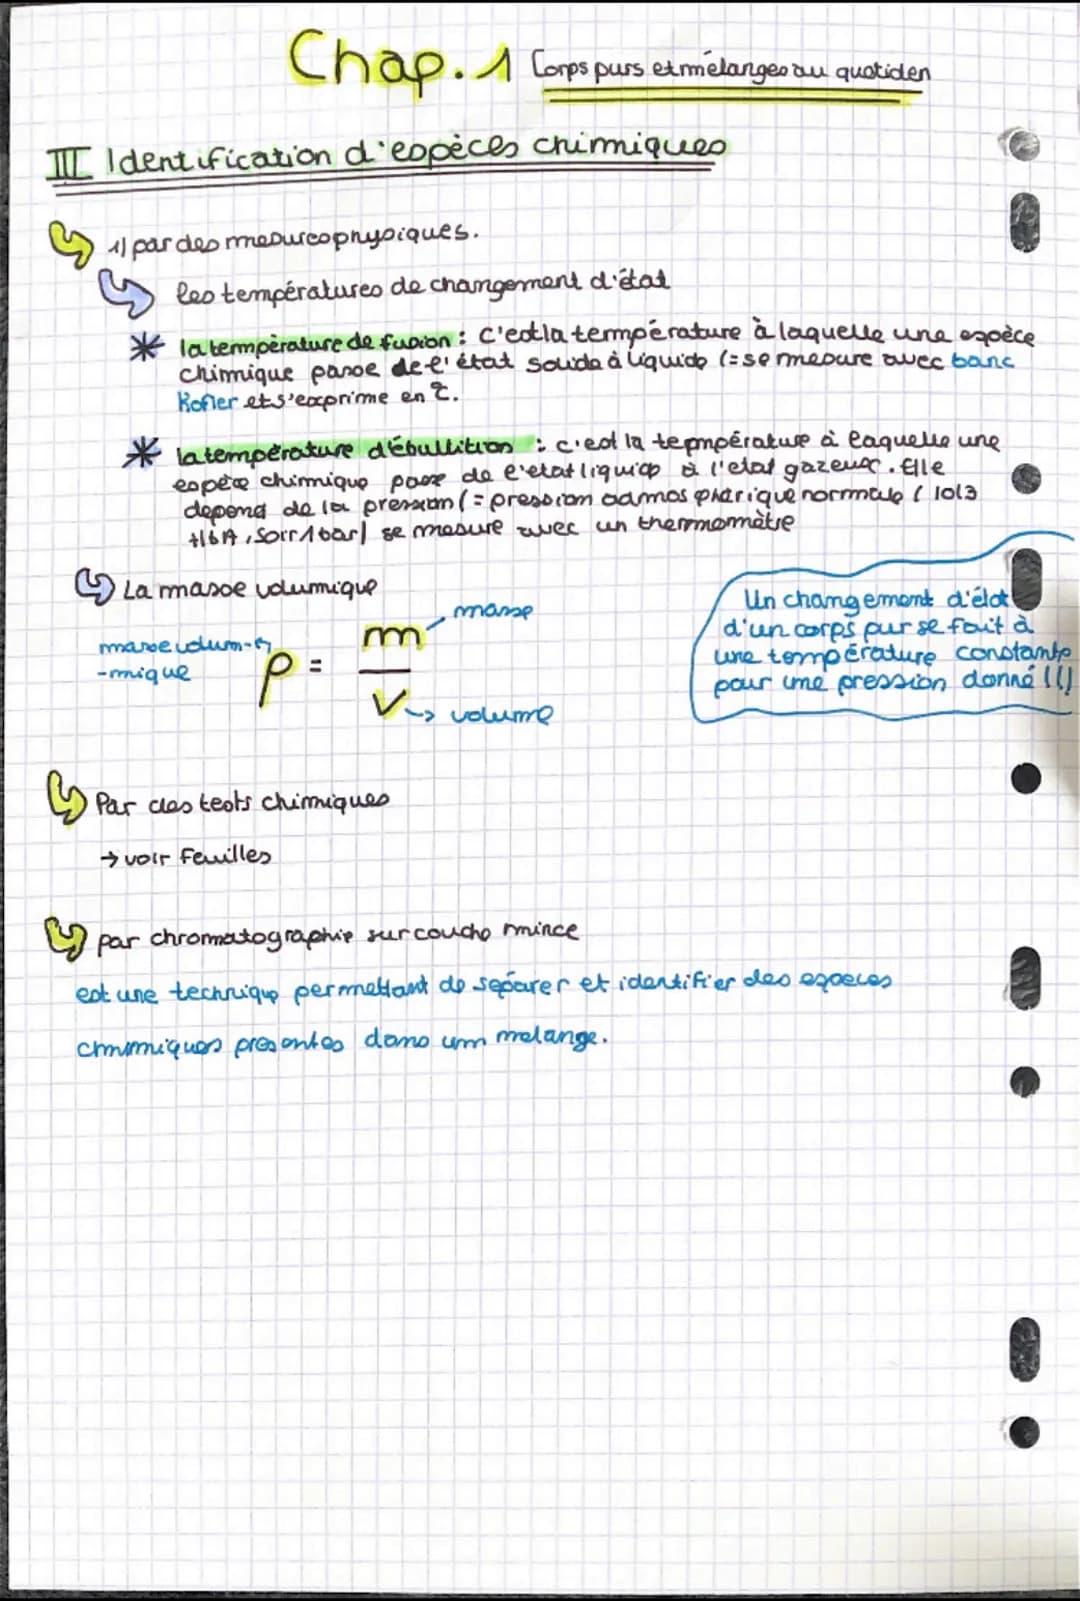 Chap. 1 Corps purs et mélanges au quotiden
III Identification d'espèces chimiques
1) par des mesures physiques.
les températures de changement d'état
* la température de fusion : c'est la température à laquelle une espèce
chimique passe de l'état solide à liquide (= se mesure avec banc
Kofler et s'exprime en °C.
* la température d'ébullition : c'est la tepmpérature à laquelle une
espèce chimique passe de l'etat liquide à l'etat gazeux. Elle
depend de la pression (= pression admosphérique normale ( 1013
, soit 1 bar) se mesure avec un thermomètre
La masse volumique
masse volum-
-mique
ρ = m / V
masse
volume
Un changement d'état
d'un corps pur se fait à
une température constante
pour une pression donné !!!
Par des tests chimiques
→ voir feuilles
par chromatographie sur couche mince
est une technique permettant de séparer et identifier des espèces
chimiques presentes dans un melange.